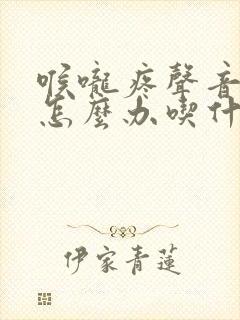 喉嚨疼聲音
怎麼办喫什
伊家青蓮